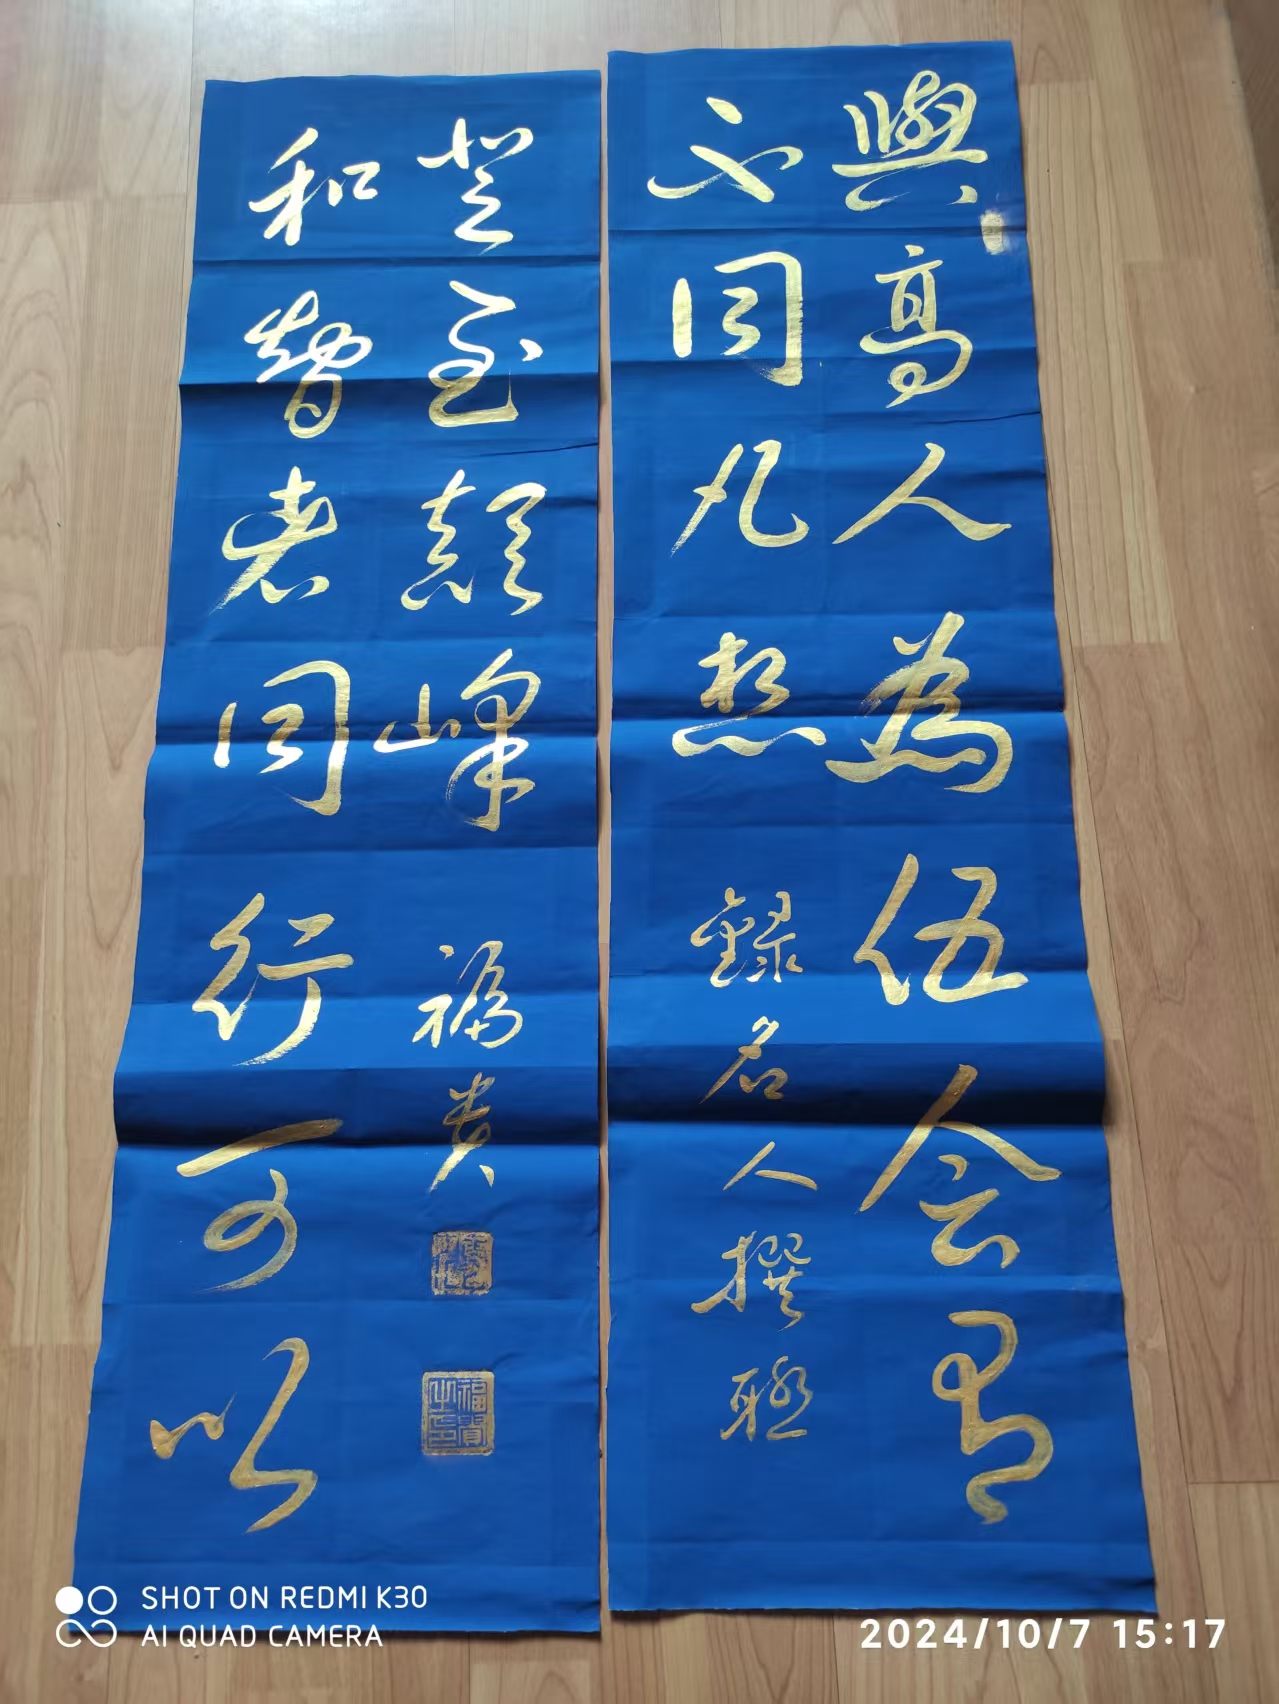 與高人為伍会有
不同凡想
錄名人撰聯
和智者同行可以
登至颠峰
福贵
福貴之印
SHOT ON REDMI K30
AI QUAD CAMERA
2024/10/7 15:17